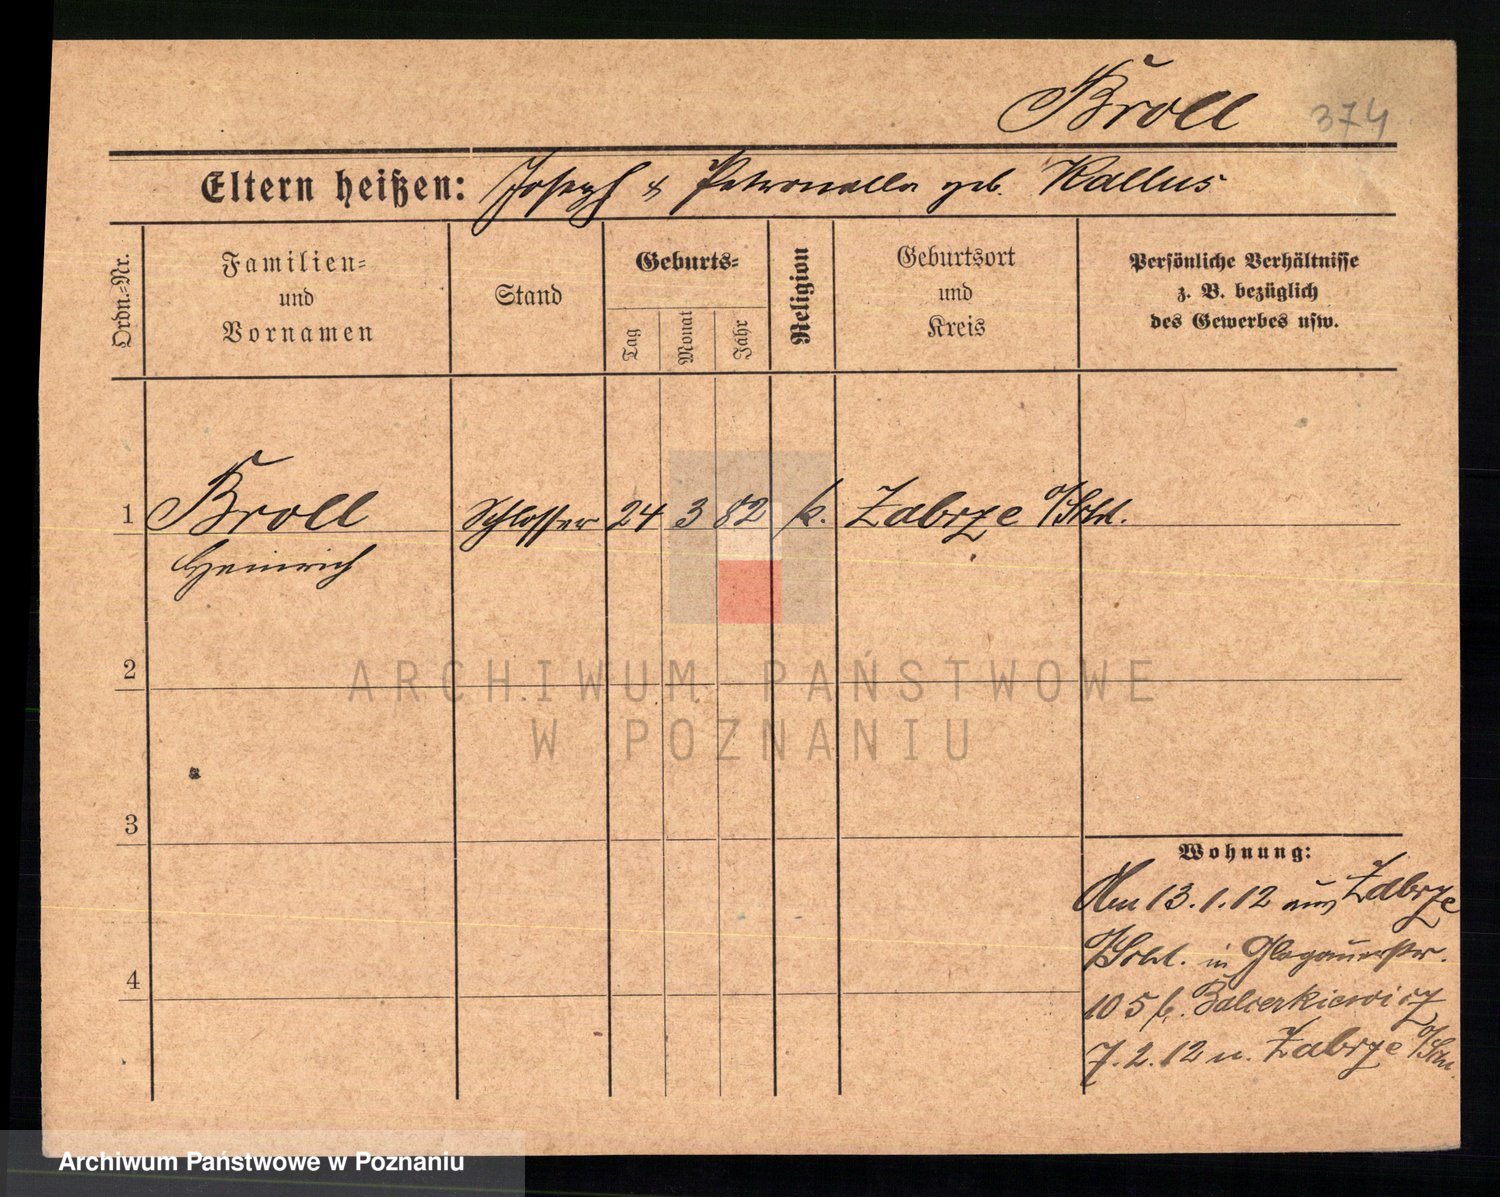 Broll 374
Eltern heißen: Joseph & Petronella geb. Kallus
Ordn.-Nr.
Familien-
und
Vornamen
Stand
Geburts-
Tag
Monat
Jahr
Religion
Geburtsort
und
Kreis
Persönliche Verhältnisse
z. B. bezüglich
des Gewerbes usw.
1 Broll Schlosser 24 3 82 k. Zabrze O/Schl.
Heinrich
2
ARCHIWUM PAŃSTWOWE
W POZNANIU
3
4
Wohnung:
Am 13.1.12 aus Zabrze
O/Schl. in Glogauerstr.
105 b. Balcerkiewicz
7.2.12 n. Zabrze O/Schl.
Archiwum Państwowe w Poznaniu